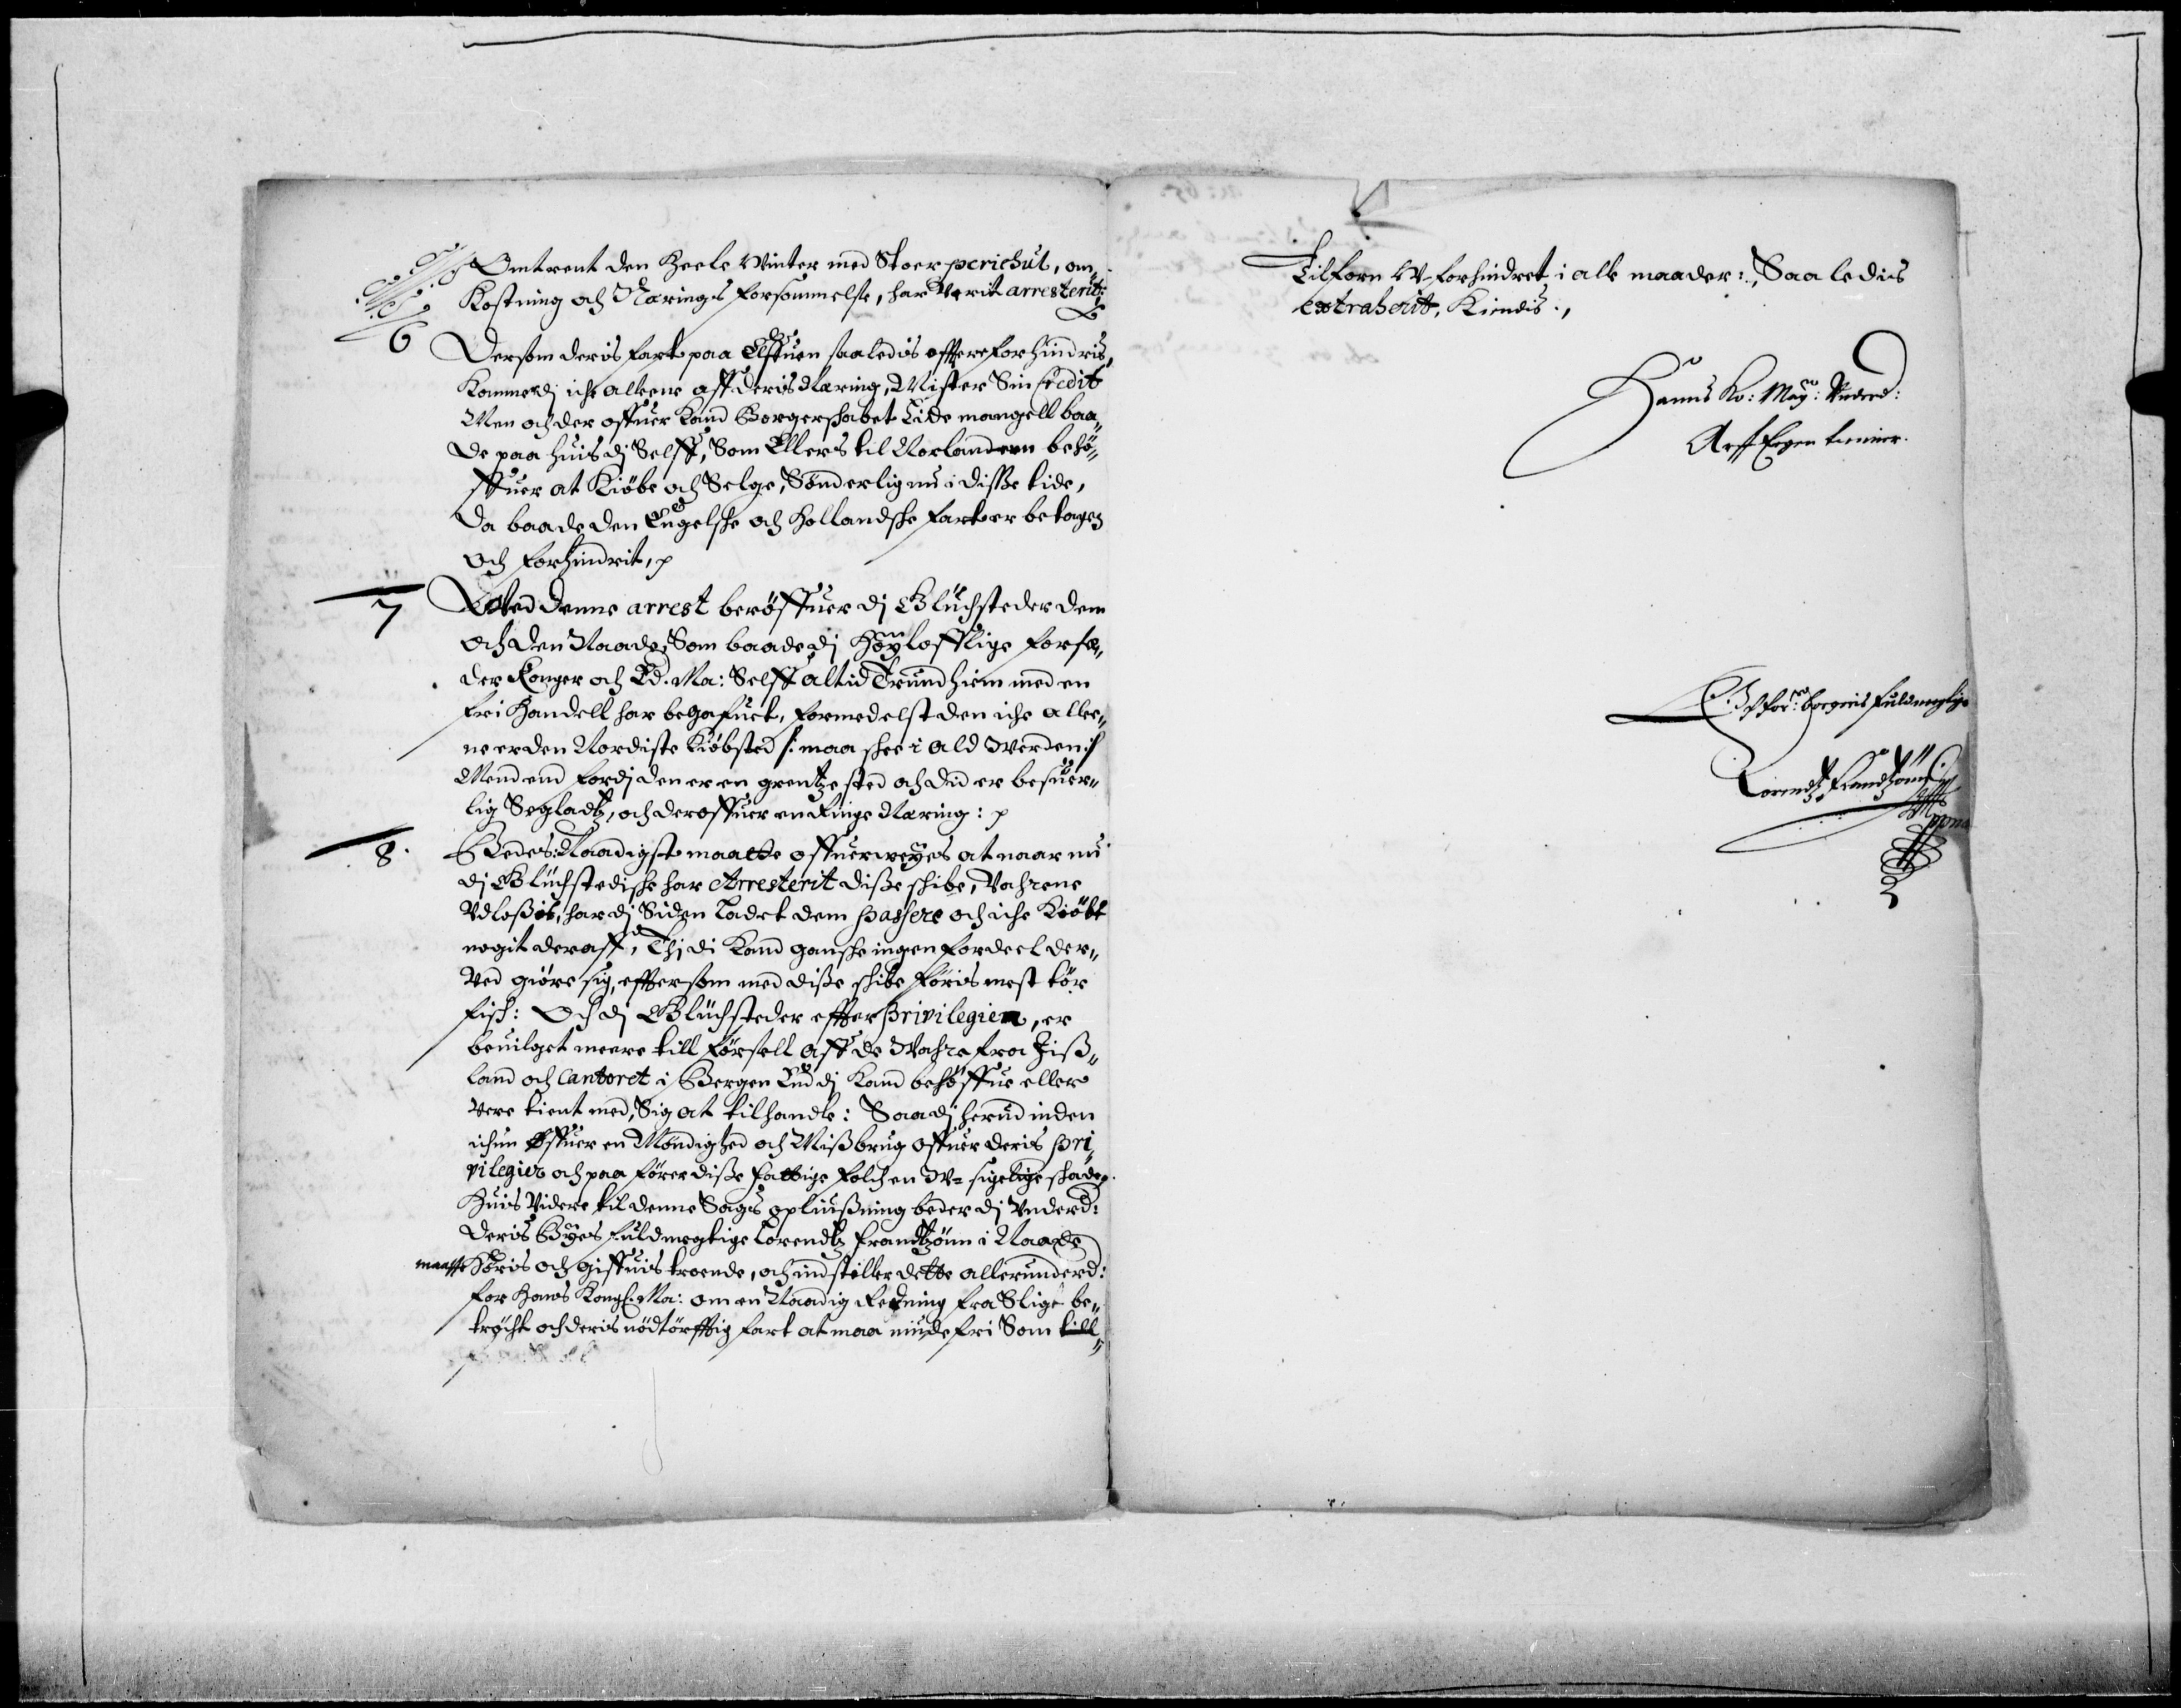 Omtrent den Heele Winter med Stoer perichul, om„
Kostning och Nærings forsømmelse, har Verit arresterit:
6 Dersom deris fart paa Elffuen saaledis effter forhindris,
Kommer dj iche alleene aff deris Næring, Mister Sin Credit
Men och der offuer Kand Borgerskabet Lide mangell baa„
de paa huis dj Selff, Som Ellers til Norlandenn behö„
ffuer at Kiöbe och Selge, Sønderlig nu i disse tide,
da baade den Engelske och Hollandske fart er betagen
och forhindrit,
7 Ved denne arrest beröffuer dj Glücksteder dem
och den Naade, Som baade dj Höylofflige forfæ„
der Konger och Ed. Ma: Selff altid Trundhiem med en
fri Handell har begafuet, formedelst den iche allee„
ne er den Nordiste Kiöbsted /: maa skee i ald Verden :/
Mend end fordj den er en grentze sted och did er besuer„
lig Segladtz, och deroffuer en Ringe Næring:
8. Bedes: Naadigst maatte offuerweyes at naar nu
dj Glückstediske har Arresterit disse skibe, Vahrene
Vdlossit, har dj Siden Ladet dem passere och iche Kiöbt
nogit deraff, Thi di Kand ganske ingen fordeel der„
Ved giöre sig, effterson med disse skibe föris mest tör
fisk: Och dj Glücksteder effter Privilegien, er
beuilget meere till førsell aff de Wahre fra Iiss„
land och Cantoret i Bergen End dj Kand behöffue eller
Vere tient med, Sig at tilhandle: Saa dj herud inden
ichun Offuer en Mondighed och Missbrug offuer deris Pri„
vilegier och paa förer disse fattige folch en V= sigelige skade.
Huis Videre til denne Sags opliussning beder dj Vnderd:
deris Byes fuldmegtige Lorendtz Frandtzönn i Naade
maatte Höris och giffuis troende, och indstiller dette allerunderd:
for Hans Kongl. Ma: om en Naadig Redning fra Slige be„
trycht och deris nödtörfftig fart at maa niude fri Som till„
Tilforn V-forhindret i alle maader: Saaledis
extraherit, Kiendis.,
Hanns Ko: May: Vnderd:
Arff Eegen tienner.
borgeris fuldmegtige
Lorendtz Frandtzönn
Mppria